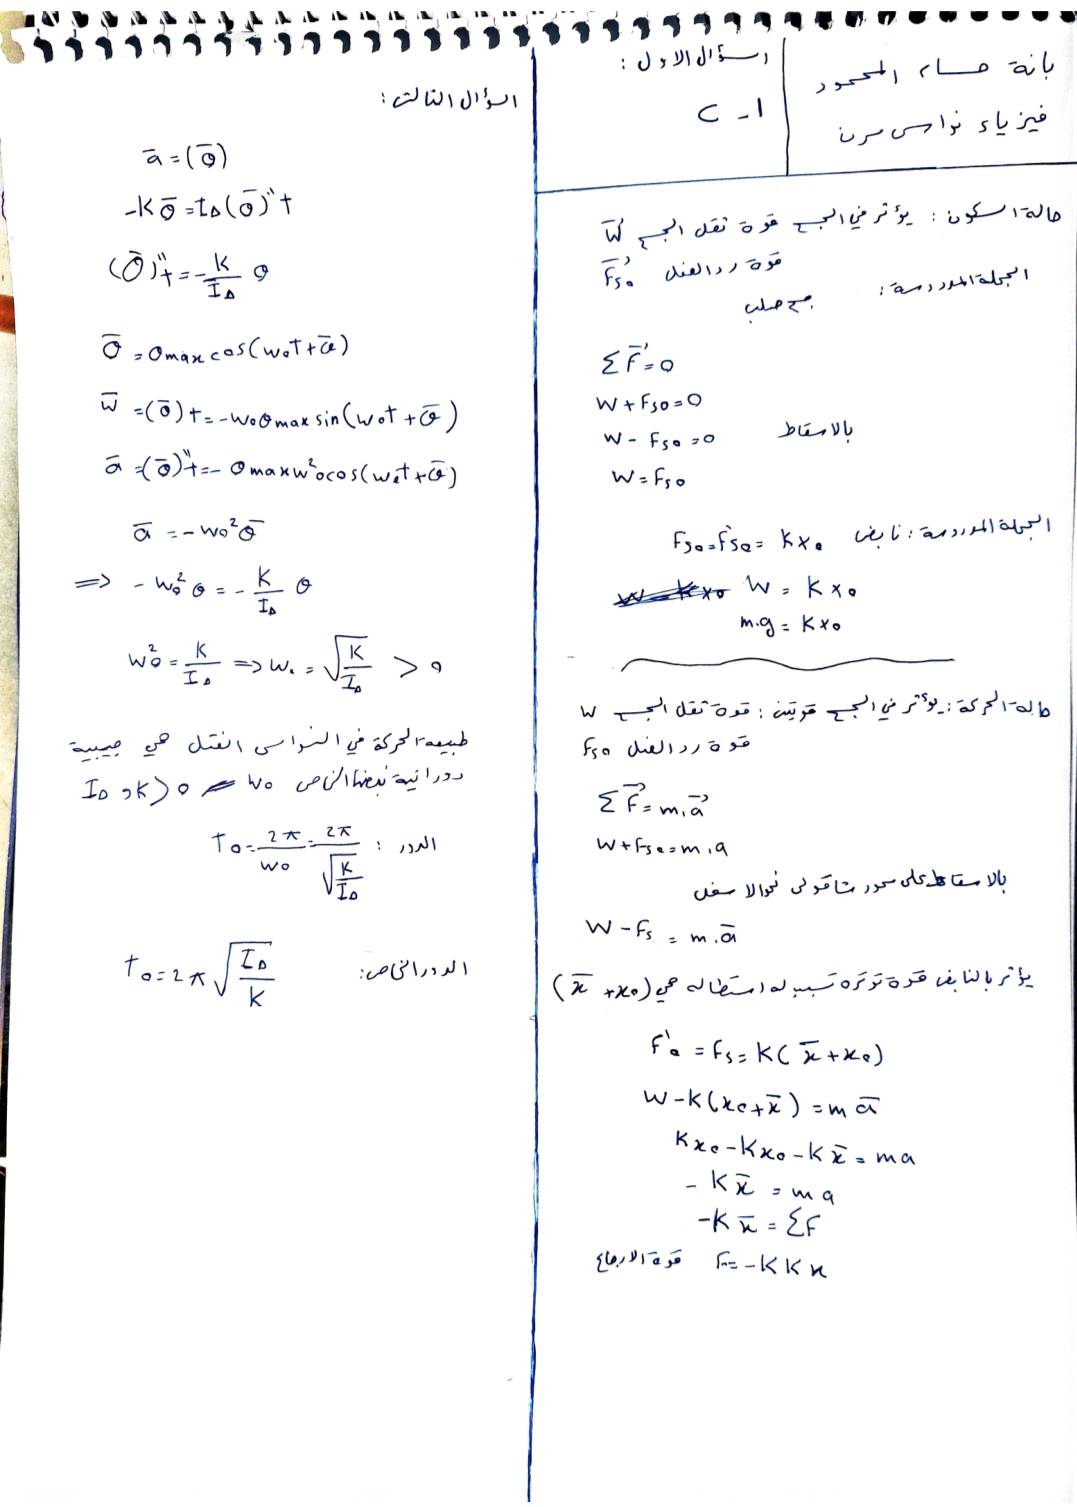 بانة حسام المحمود
فيزياء نواس مرن
السؤال الاول :
1 - C
حالة السكون : يؤثر في الجسم قوة ثقل الجسم W
قوة رد الفتل Fs₀
الجملة المدروسة : جسم صلب
ΣF⃗ = 0
W + Fs₀ = 0
بالاسقاط W - Fs₀ = 0
W = Fs₀
الجملة المدروسة : نابض Fs₀ = F's₀ = Kx₀
W = Kx₀
m.g = Kx₀
حالة الحركة : يؤثر في الجسم قوتين : قوة ثقل الجسم W
قوة رد الفتل Fs₀
ΣF⃗ = m.a⃗
W + Fs₀ = m.a
بالاسقاط على محور شاقولي نحو الاسفل
W - Fs = m.a̅
يؤثر بالنابض قوة توتره تسبب له استطاله هي (x̅ + x₀)
F'₀ = Fs = K(x̅ + x₀)
W - K(x₀ + x̅) = m a̅
Kx₀ - Kx₀ - Kx̅ = ma
- Kx̅ = ma
-Kx̅ = ΣF
قوة الارجاع F = -KKx
السؤال الثالث :
a̅ = (θ̅)
-Kθ̅ = I∆(θ̅)''t
(θ̅)''t = -K/I∆ θ
θ̅ = θmax cos(w₀t + φ̅)
w̅ = (θ̅)t = -w₀θmax sin(w₀t + φ̅)
a̅ = (θ̅)''t = -θmax w²₀ cos(w₀t + φ̅)
a̅ = -w₀²θ̅
⇒ -w₀² θ = -K/I∆ θ
w₀² = K/I∆ ⇒ w₀ = √(K/I∆) > 0
طبيعة الحركة في النواس الفتل هي جيبية
دورانية نبضها الخاص w₀ 0 < I∆ و K
الدور : T₀ = 2π/w₀ = 2π/√(K/I∆)
الدور الخاص : T₀ = 2π√(I∆/K)